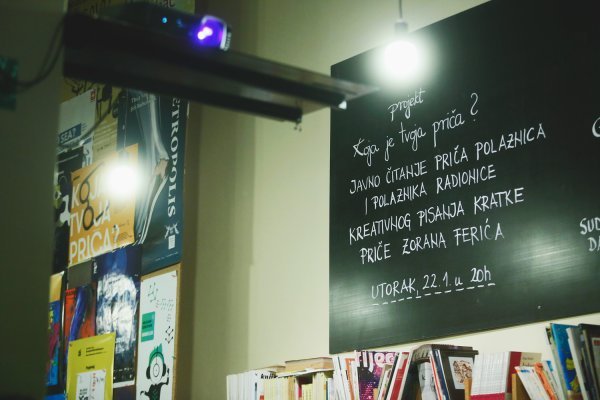 SEA?
ETROPOLIS
TVOJA
PRIČA?
projekt
Koja je tvoja priča?
JAVNO ČITANJE PRIČA POLAZNICA
I POLAZNIKA RADIONICE
KREATIVNOG PISANJA KRATKE
PRIČE ZORANA FERIĆA
UTORAK, 22.1. u 20h
SUD
DA
riječ